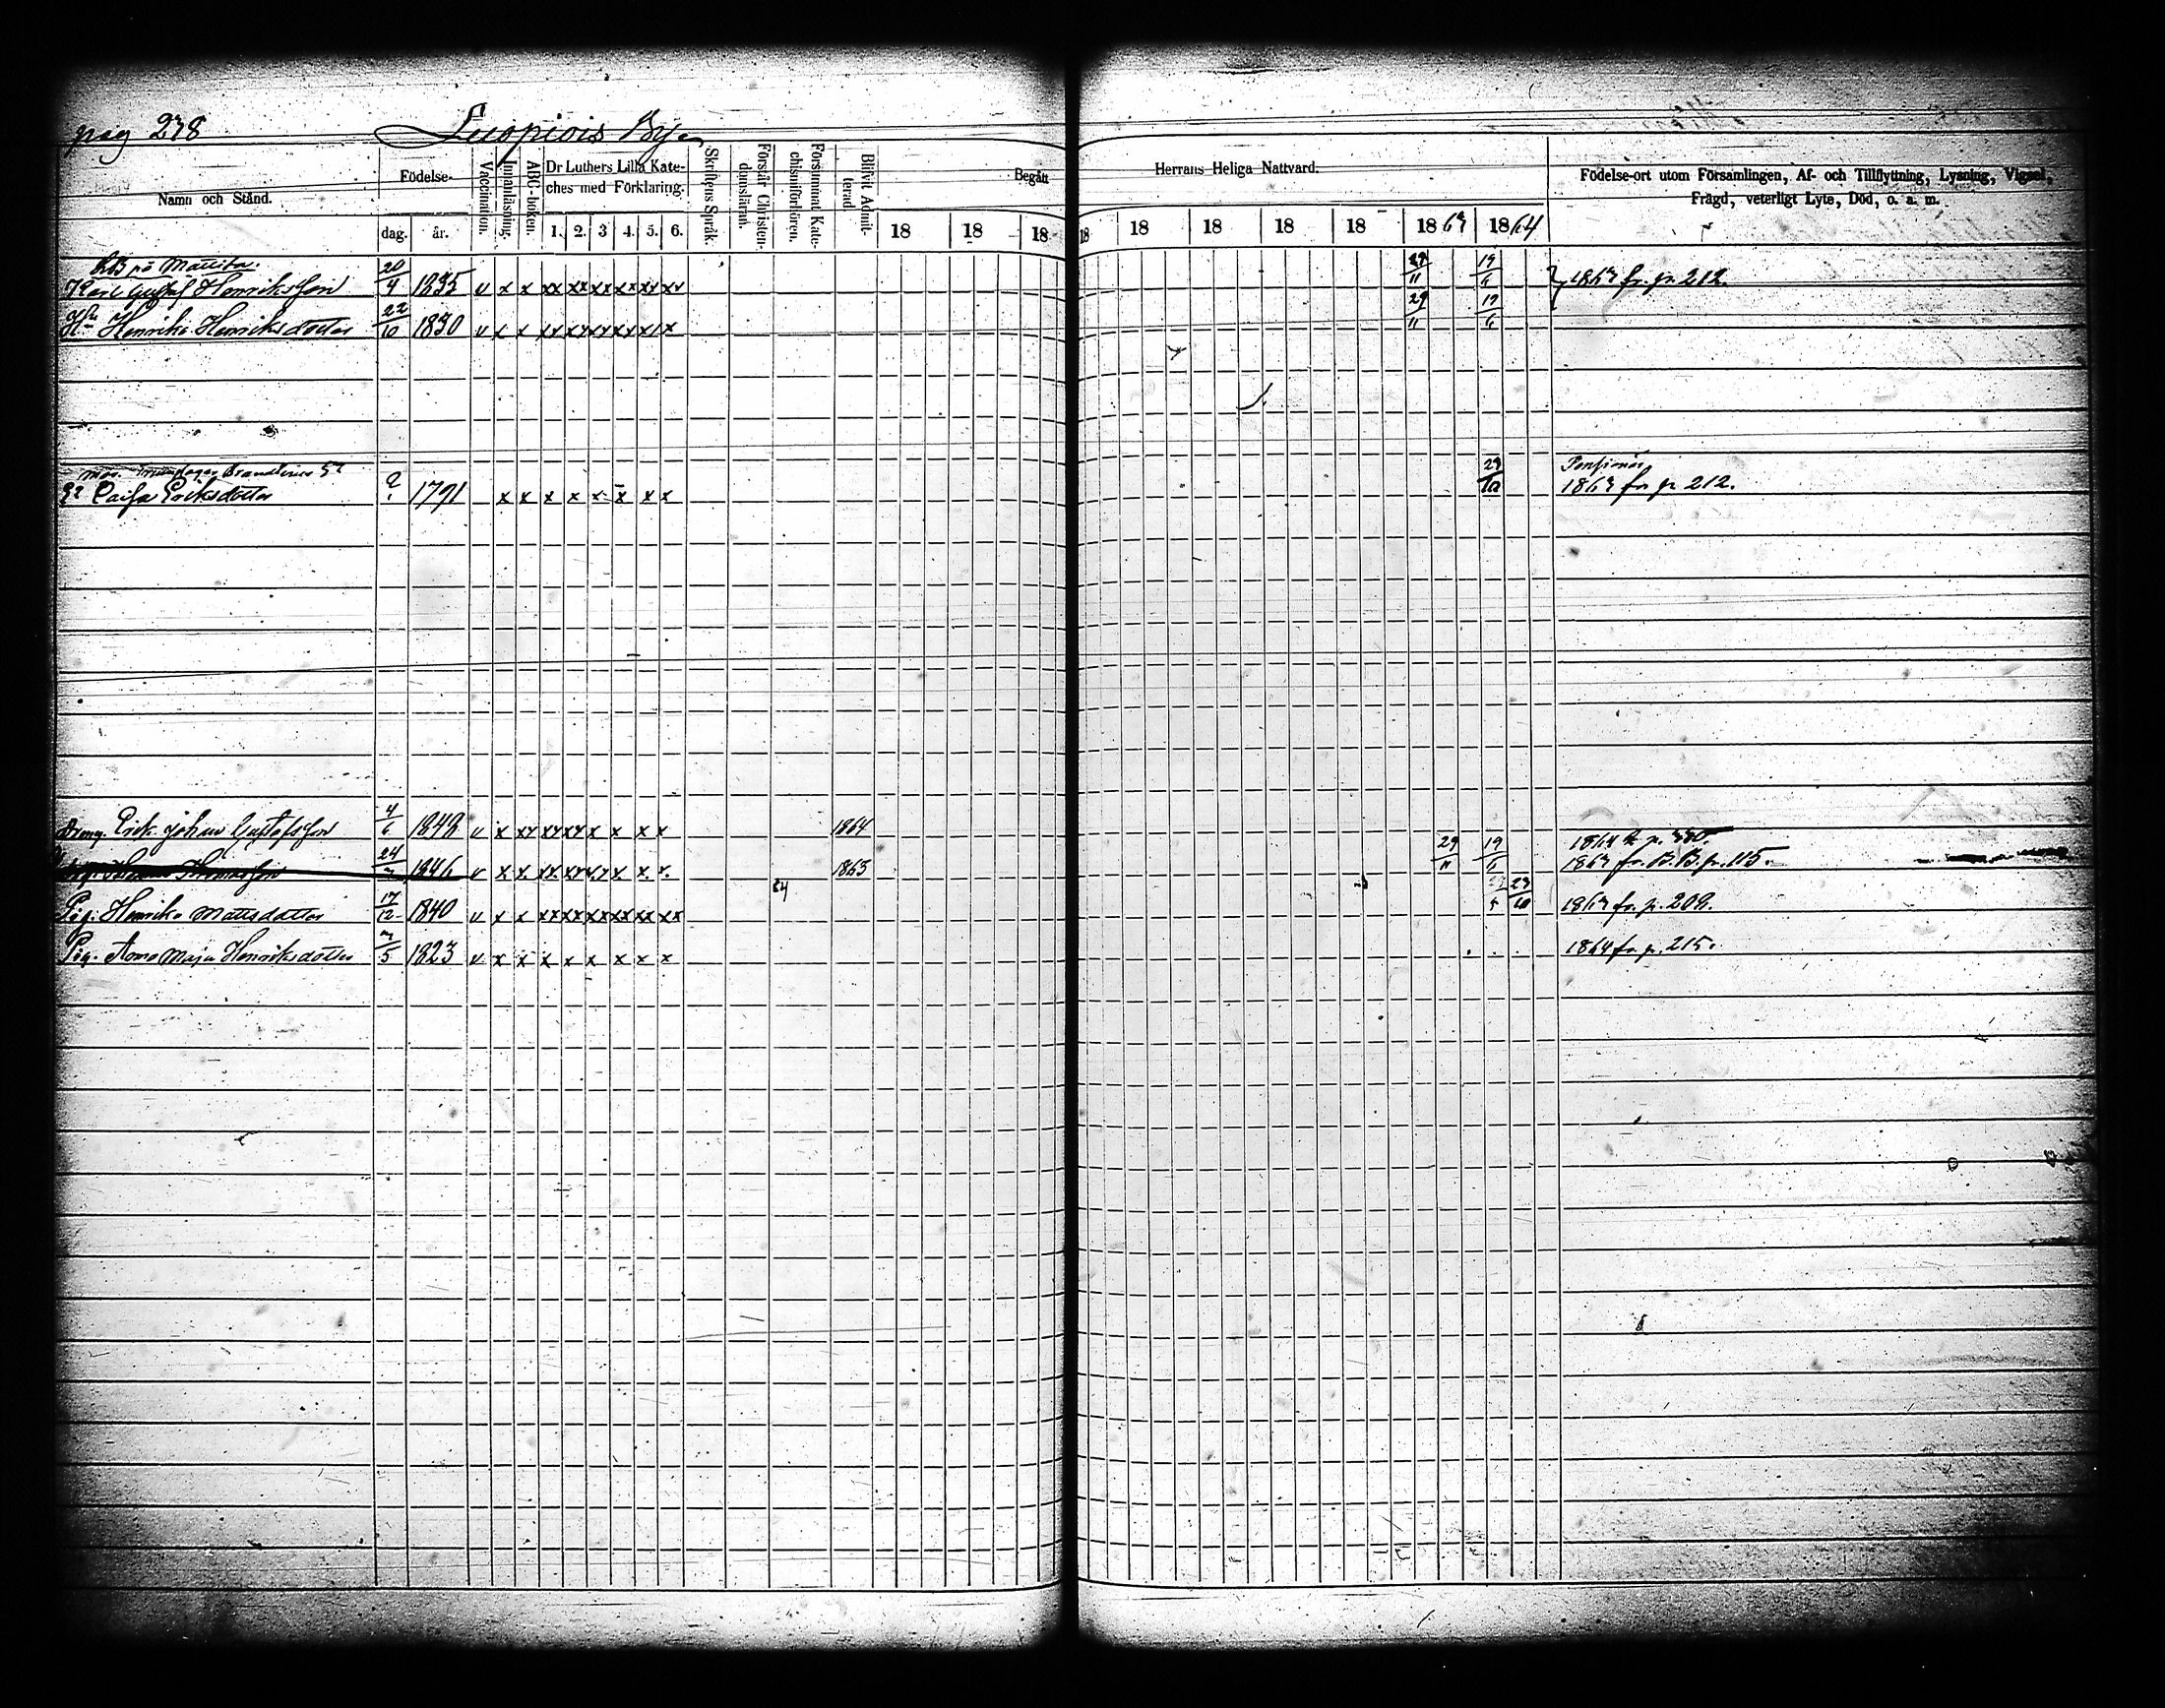 pag 238
Luopiois By
Namn och Stånd.
Födelse-
dag. år.
Vaccination.
Innanläsning.
ABC-boken.
Dr Luthers Lilla Kate-
ches med Förklaring.
1. 2. 3 4. 5. 6.
Skriftens Språk.
Förstår Christen-
domsläran.
Försummat Kate-
chismiförhören.
Blifvit Admit-
terad
Begått
Herrans Heliga Nattvard.
18 18 18 18 18 18 18 18 1863 1864
Födelse-ort utom Församlingen, Af- och Tillflyttning, Lysning, Vigsel,
Frägd, veterligt Lyte, Död, o. a. m.
på Mattila
Karl Gustaf Henriksson 20/4 1835 v x x xx xx xx xx xx xx 29/11 19/6 1863 fr. p. 212.
Hu Henrika Henriksdotter 22/10 1830 v x x 29/11 19/6
Caisa Eriksdotter 1791 x x x x x x x x 29/10 1863 fr p 212.
Dreng. Erik Johan Gustafsson 4/6 1848 v x 1864 1864 fr p.
Thomasson 24 1846 v x x 1865 29/11 19/6 1863 fr. B.B. p. 115.
Pig. Henrika Mattsdotter 17/12 1840 v x x xx xx xx xx xx xx 23/10 1863 fr. p. 209.
Pig. Anna Maja Henriksdotter 5 1823 v x x x x x x x x 1864 fr. p. 215.